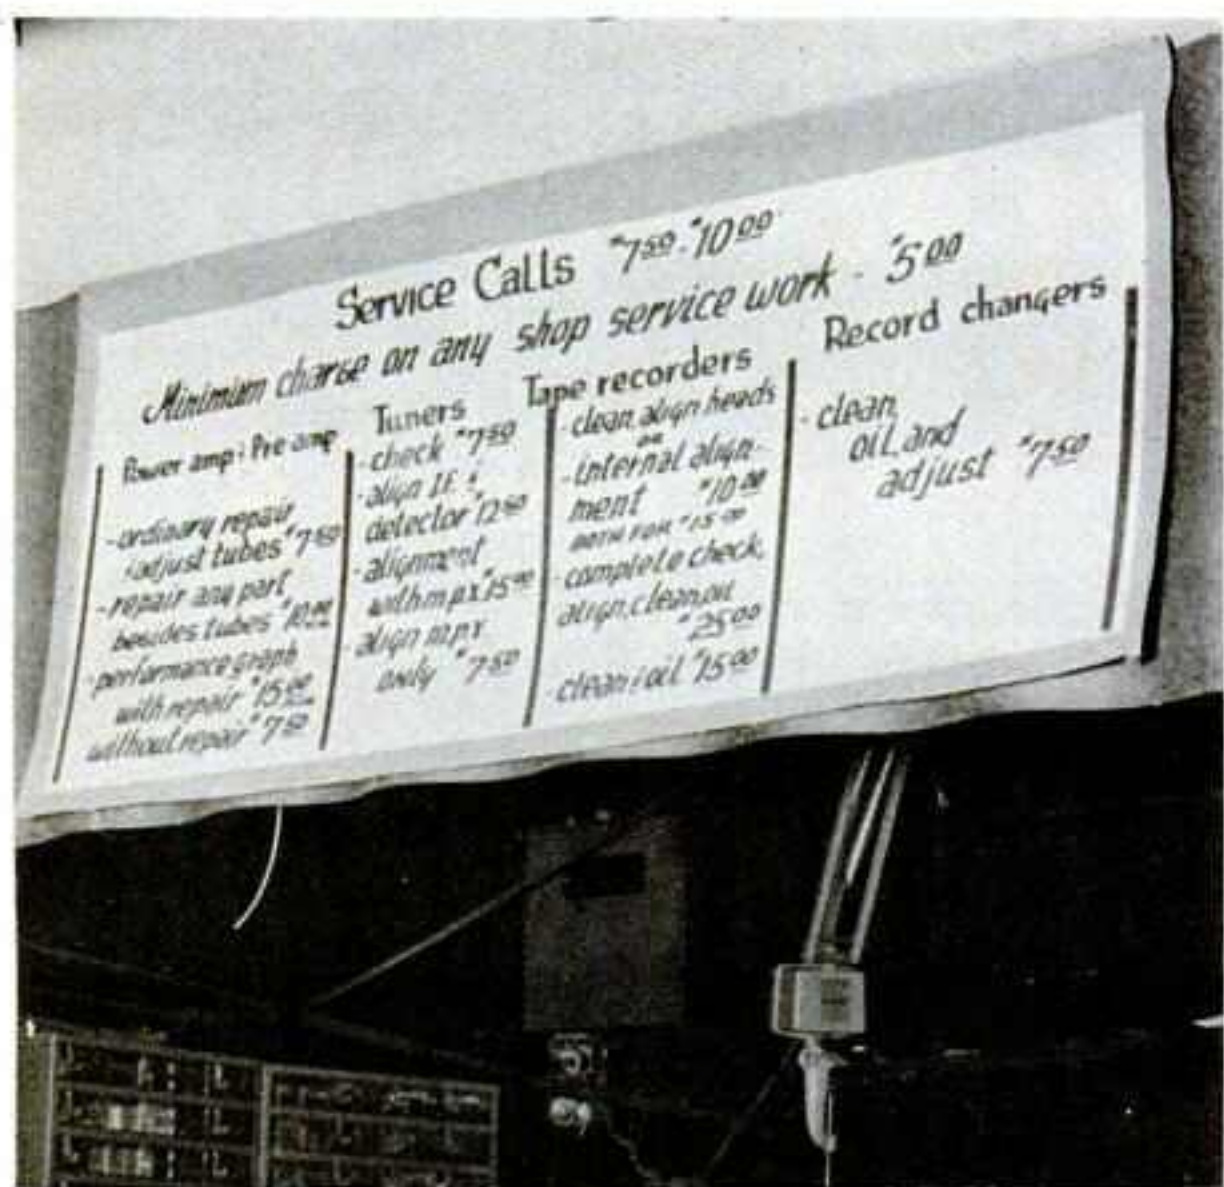 Service Calls $7.50 - $10.00
Minimum charge on any shop service work - $5.00
Power amp & Pre amp
- ordinary repair
& adjust tubes $7.50
- repair any part
besides tubes $10.00
- performance graph
with repair $15.00
without repair $7.50
Tuners
- check $7.50
- align I.F. &
detector $12.50
- alignment
with mpx $15.00
- align m.p.x
only $7.50
Tape recorders
- clean, align heads
or
- internal align-
ment $10.00
BOTH FOR $15.00
- complete check,
align, clean, oil
$25.00
- clean & oil $15.00
Record changers
- clean,
oil, and
adjust $7.50